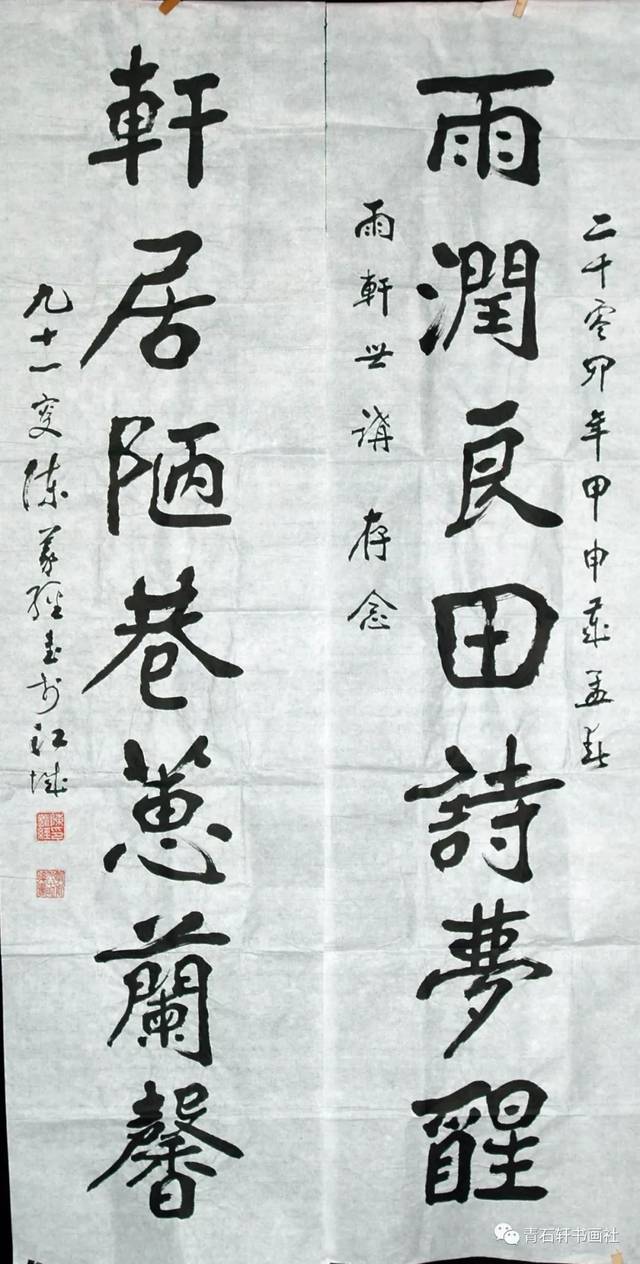 二千零四年甲申歲孟春
雨潤良田詩夢醒
雨軒世講 存念
軒居陋巷蕙蘭馨
九十一叟陳義經書於江城
青石轩书画社